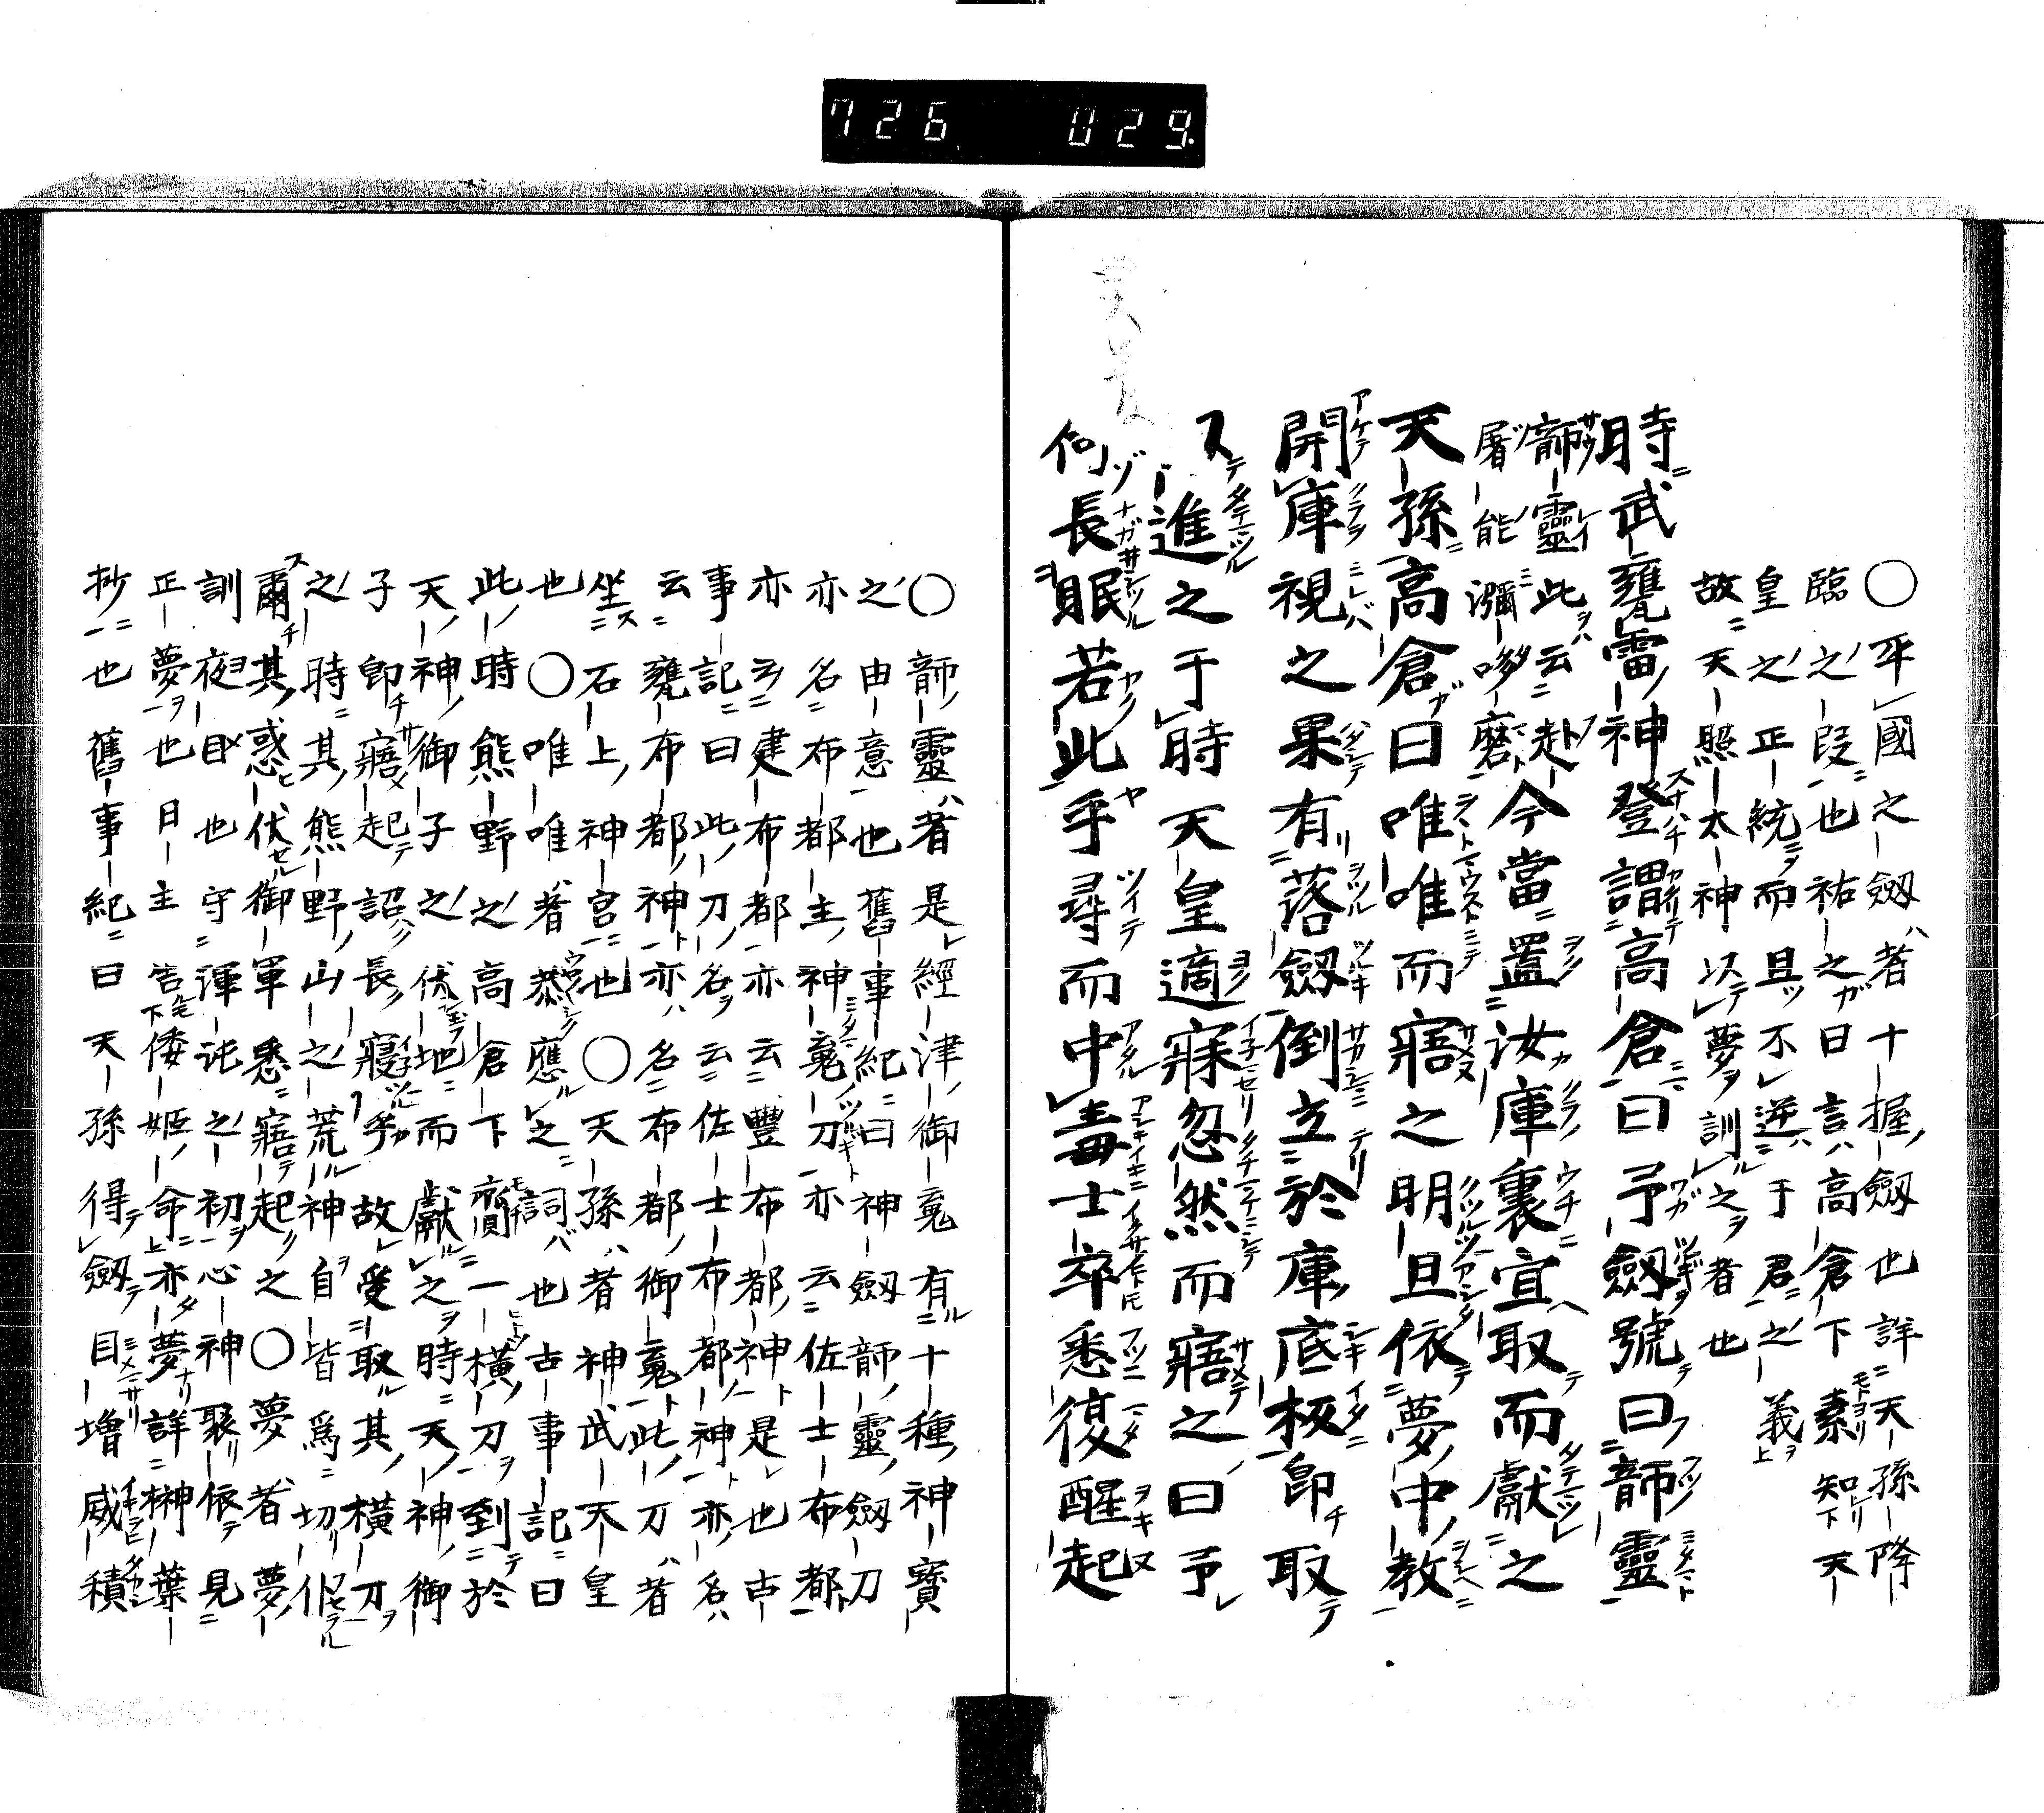 726 029.
〇平國之劔者十握劔也詳天孫降
臨之段也祐之曰言高倉下素知天
皇之正統而且不逆于君之義
故天照太神以夢訓之者也
時武甕雷神登謂高倉曰予劔號曰韴靈
韴靈此云赴
屠能瀰哆磨今當置汝庫裏宜取而獻之
天孫高倉曰唯唯而寤之明旦依夢中教
開庫視之果有落劔倒立於庫底板卽取
以進之于時天皇適寐忽然而寤之曰予
何長眠若此乎尋而中毒士卒悉復醒起
〇韴靈者是經津御䰟有十種神寶
之由意也舊事紀曰神劔韴靈劔刀
亦名布都主神䰟刀亦云佐士布都
亦云建布都亦云豐布都神是也古
事記曰此刀名云佐士布都神亦名
云甕布都神亦名布都御䰟此刀者
坐石上神宮也〇天孫者神武天皇
也〇唯唯者恭應之詞也古事記曰
此時熊野之高倉下齎一橫刀到於
天神御子之伏地而獻之時天神御
子卽寤起詔長寢乎故受取其橫刀
之時其熊野山之荒神自皆爲切仆
爾其惑伏御軍悉寤起之〇夢者夢
訓夜目也守渾沌之初心神聚依見
正夢也日主告倭姬命亦夢詳榊葉
抄也舊事紀曰天孫得劔目增威積